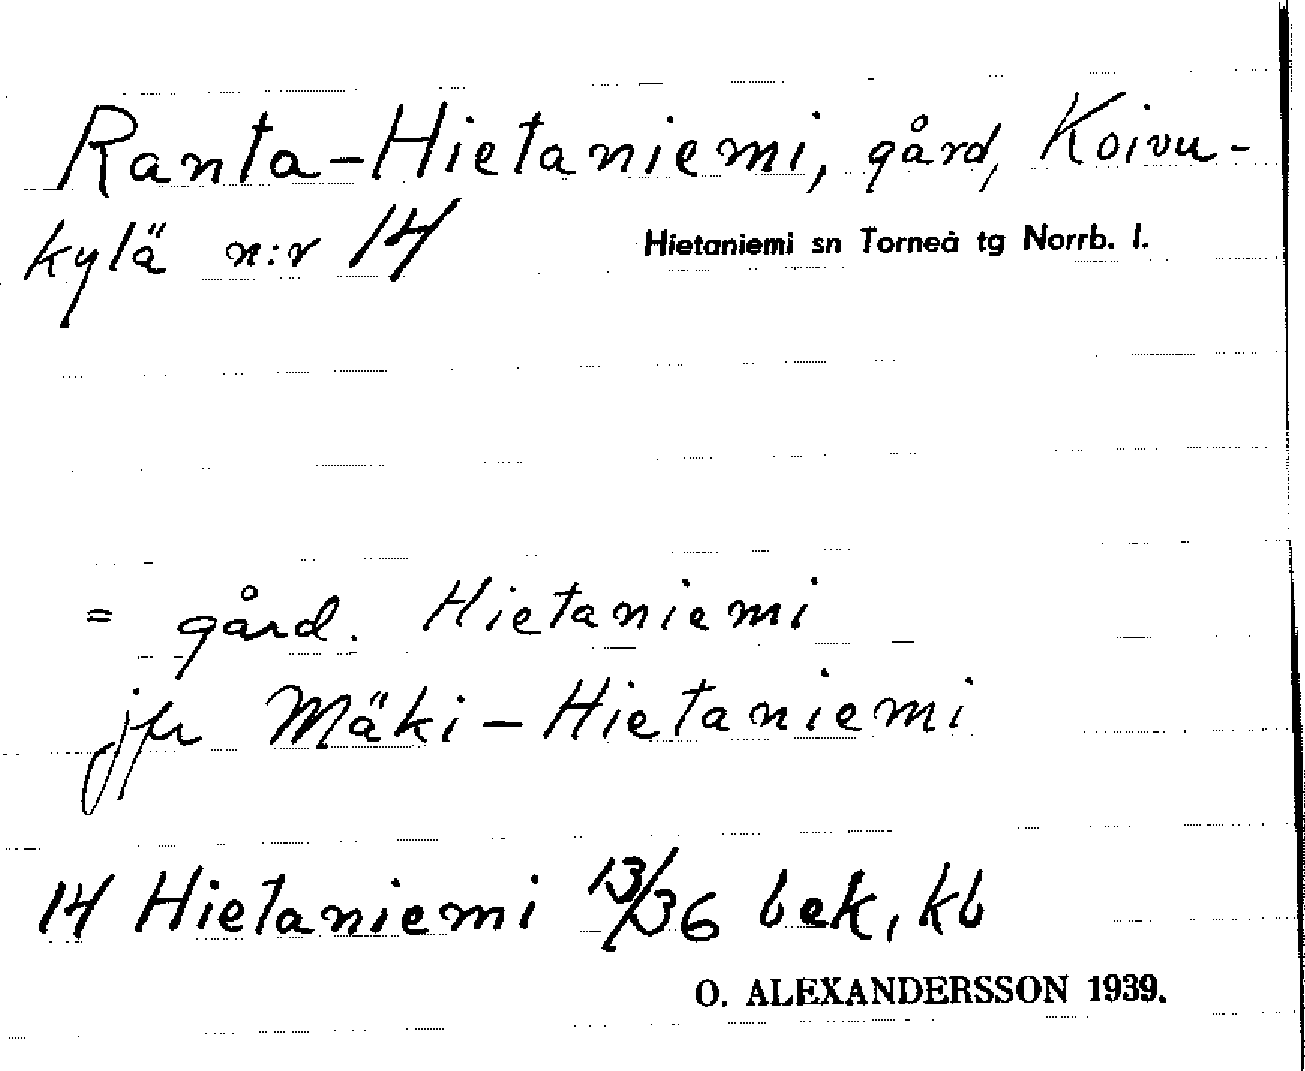 Ranta-Hietaniemi, gård, Koivu-
kylä n:r 14
Hietaniemi sn Torneå tg Norrb. l.
= gård. Hietaniemi
jfr Mäki-Hietaniemi
14 Hietaniemi 13/36 bek, kb
O. ALEXANDERSSON 1939.